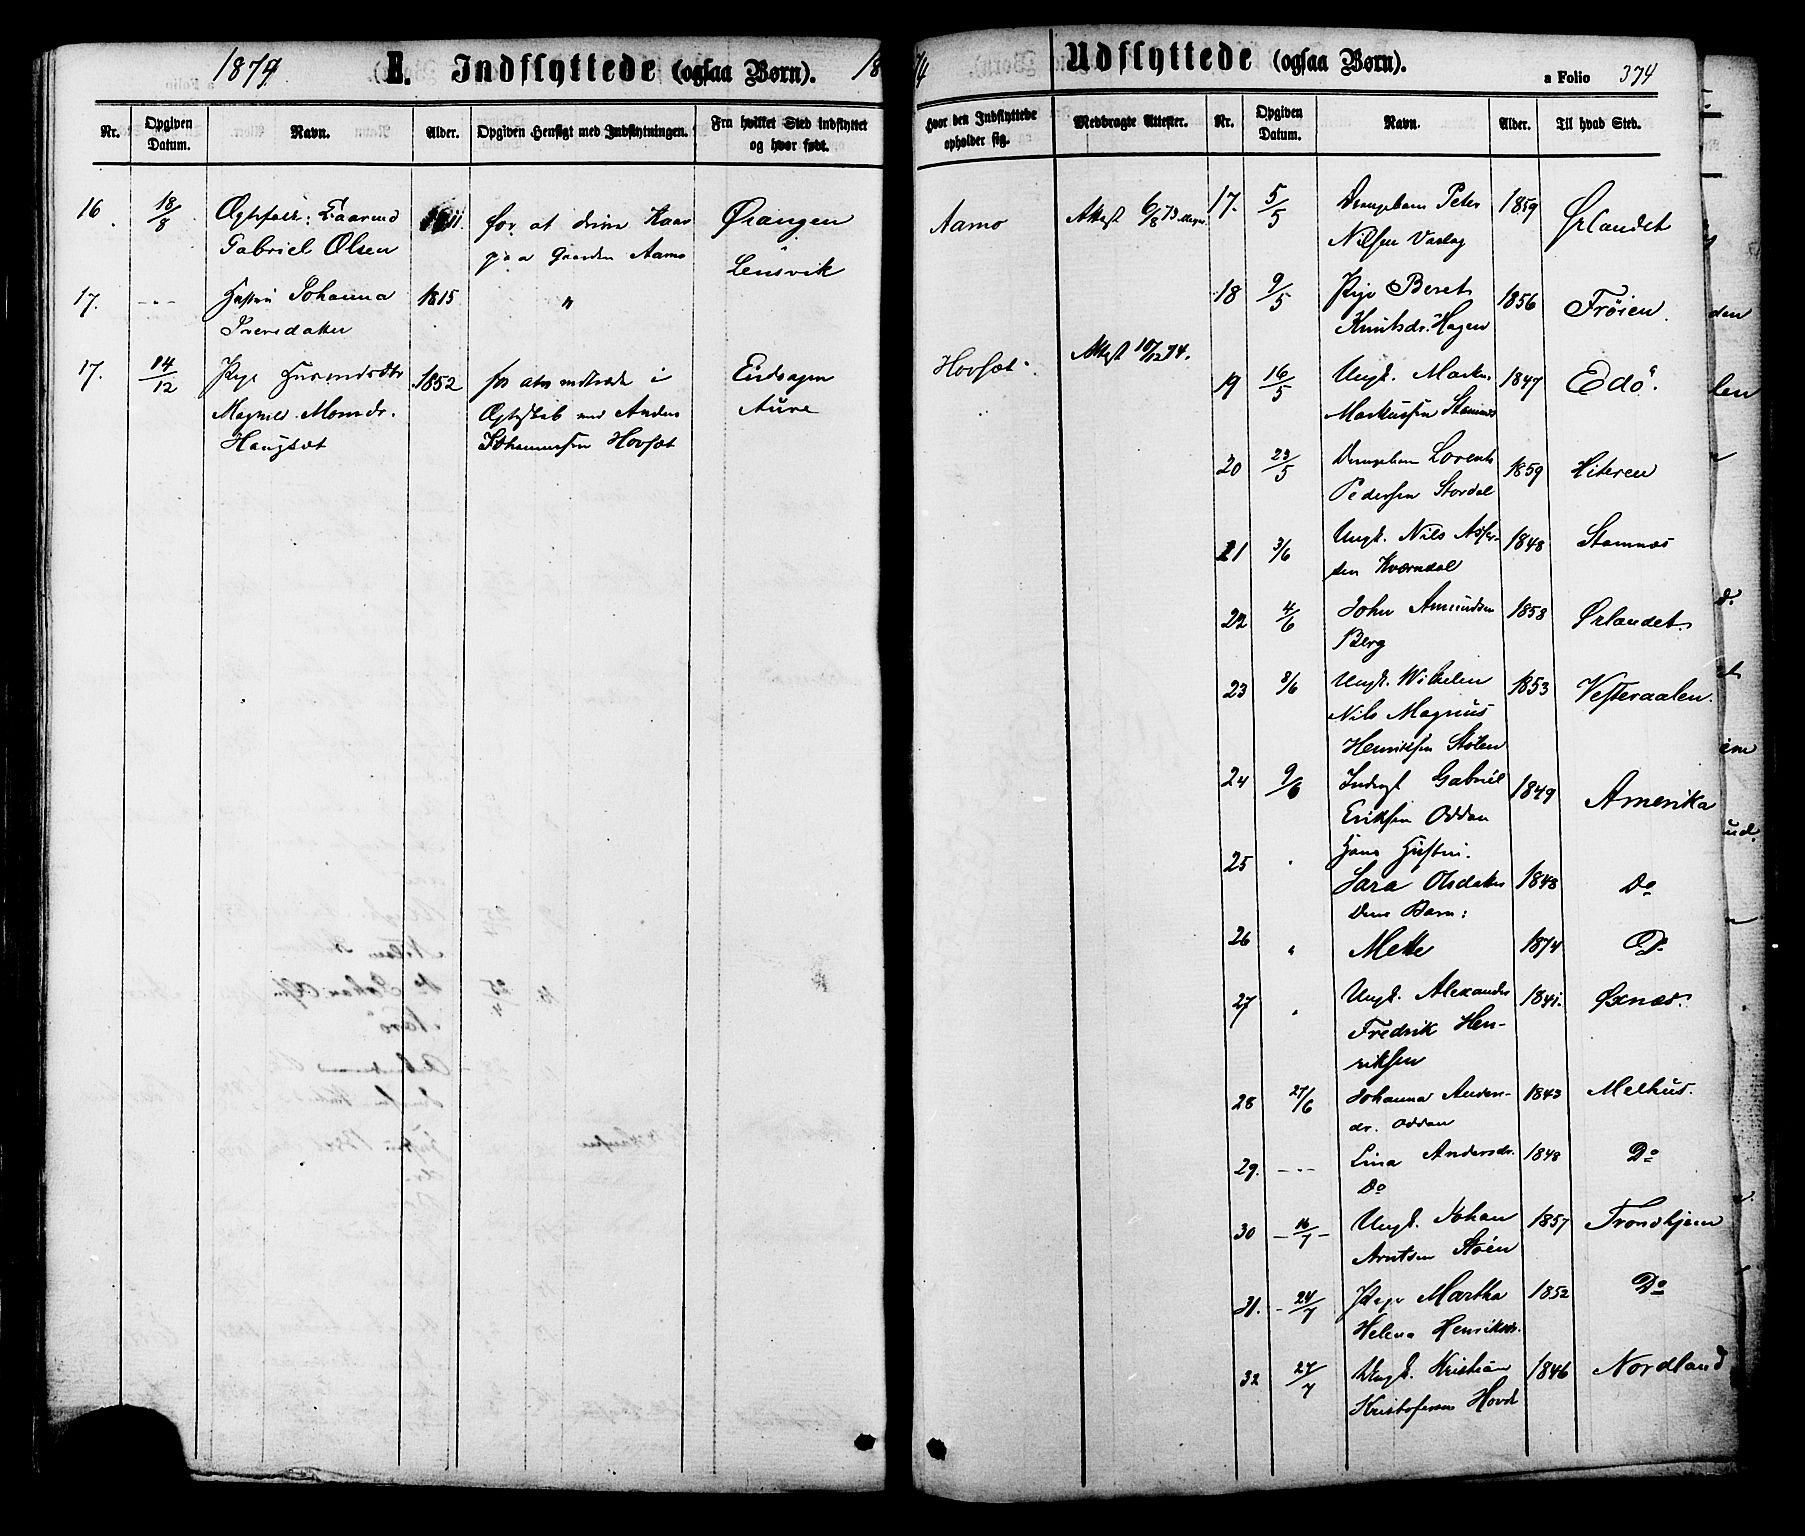 1874
E. Indflyttede (ogsaa Børn).
18
Nr.
Opgiven Datum.
Navn.
Alder.
Opgiven Hensigt med Indflytningen.
Fra hvilket Sted indflyttet og hvor født.
16
18/8
Gabriel Olsen
for at
paa Gaarden Aamo
Ørangen
Lensvik
17.
- - -
Hustru Johanna
Iversdatter
1815
"
17.
14/12
Pige
Haugsæt
1852
for at indtræde i
Ægteskab med Anders
Johannessen Hovsæt
Aure
74
Udflyttede (ogsaa Børn).
a Folio 374
Hvor den Indflyttede opholder sig.
Medbragte Attester.
Nr.
Opgiven Datum.
Navn.
Alder.
Til hvad Sted.
Aamo
Attest 6/8 73
Hovsæt
Attest 10/12 74.
17.
5/5
Peter
Nilsen
1859
Ørlandet
18
9/5
Pige Beret
Knutsdr. Hagen
1856
Frøien.
19
16/5
Ungk.
Markussen
1847
Edö.
20
23/5
Lorents
Pedersen Stordal
1859
Hiteren
21
3/6
Ungk. Nils
sen Kværndal
1848
Stamnæs
22
4/6
John Amundsen
Berg
1858
Ørlandet.
23
8/6
Ungk.
Nils Magnus
Henriksen Stölen
1853
Vesteraalen.
24
9/6
Gabriel
Eriksen Oddan
1849
Amerika
25
"
Hans Hustru.
Sara Olsdatter
1848
Do
Dens Barn:
26
"
Mette
1874
Do
27
"
Ungk. Alexander
Fredrik Hen-
riksen
1841.
Øxnæs.
28
27/6
Johanna Anders-
dr. Oddan
1843
Melhus.
29.
- - -
Lina Andersdr.
Do
1848
Do
30
16/7
Ungk. Johan
Arntsen Støen
1857
Trondhjem
31.
24/7
Pige Martha
Helena Henriksdr.
1852
Do
32
27/7
Ungk. Kristian
Kristofersen Hovd
1846
Nordland